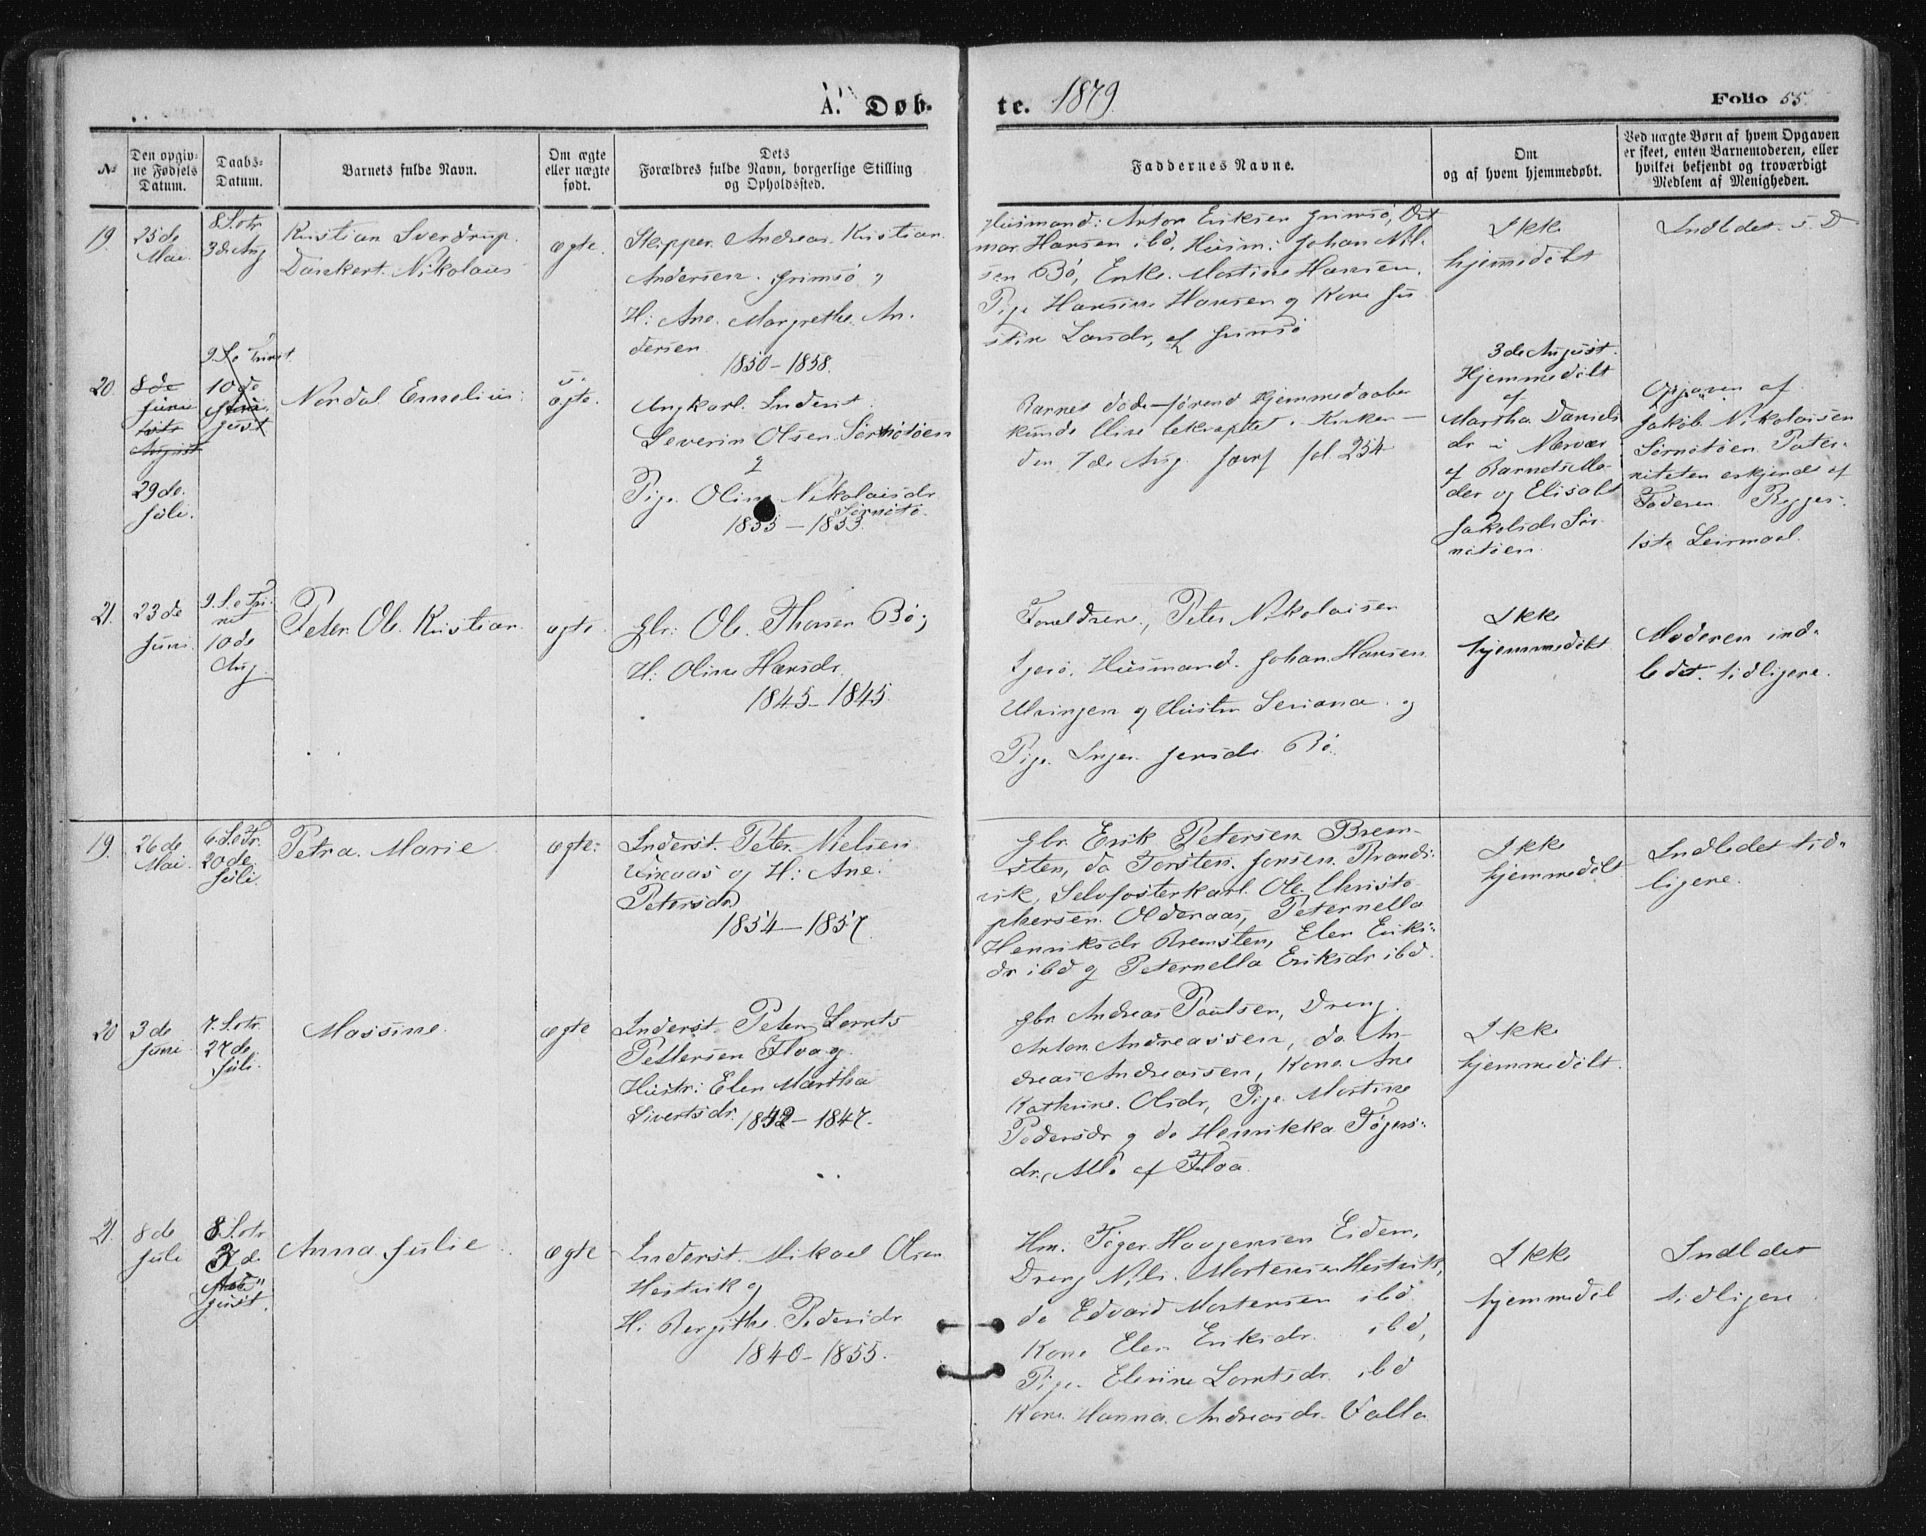 A. Døb-
te. 1879.
Folio 55.
№
Den opgiv-
ne Fødsels
Datum.
Daabs-
Datum.
Barnets fulde Navn.
Om ægte
eller uægte
født.
Dets
Forældres fulde Navn, borgerlige Stilling
og Opholdssted.
Faddernes Navne.
Om
og af hvem hjemmedøbt.
Ved uægte Børn af hvem Opgaven
er skeet, enten Barnemoderen, eller
hvilket bekjendt og troværdigt
Medlem af Menigheden.
19.
25de
Mai
8 S. e tr.
3de Aug
Kristian Sverdrup
Danckert Nikolaus
ægte.
Skipper Andreas Kristian
Andersen Grimsø,
H: Ane Margrethe An-
dersen
1850-1858.
Husmand: Anton Eriksen Grimsø, Det
mar Hansen ibd, Husm: Johan Nil-
sen Bø, Enke Martine Hansen,
Pige Hansine Hansen og Kone Ju
stine Larsdr, af Grimsø
Ikke
hjemmedøbt
Indledet s. D
20.
8de
Juni
August
29de
Juli.
9. S. e Trinit.
10de
gust
Nordal Ennelius:
u-
ægte.
Ungkarl. Inderst
Severin Olsen Sørnøtøen
Pige Oline Nikolaisdr
Sørnøtø.
1855-1853
Barnet døde førend Hjemmedaaben
kunde blive bekræftet i Kirken —
den 7de Aug. Jævnf fol. 254
3de August.
Hjemmedøbt
af
Martha Daniels
dr i Nærvær
af Barnets Mo-
der og Elisabt
Jakobsdr Sør-
nøtøen.
Opgaven af
Jakob Nikolaisen
Sørnøtøen. Pater-
niteten erkjendt af
Faderen. Begges
1ste Leiermaal.
21.
23de
Juni.
9. S. e Tri-
nit
10de
Aug.
Peter Ole Kristian
ægte.
Gbr: Ole Thorsen Bø,
H: Oline Hansdr.
1845-1845.
Forældrene, Peter Nikolaisen
Igerø, Husmand Johan Hansen
Ulvingen og Hustru Seriana og
Pige Inger Jensdr Bø.
Ikke
hjemmedøbt
Moderen ind-
ledet tidligere.
19.
26de
Mai.
6 S. e Tr.
20de
Juli.
Petra Marie
ægte.
Inderst. Peter Nielsen
Vikaas og H: Ane
Petersdr
1854-1857.
Gbr Erik Petersen Brem-
sten, do Torsten Jonsen Brands-
vik, Selvfosterkarl Ole Christo
phersen Olderaas, Peternella
Henriksdr Bremsten, Elen Eriks-
dr ibd og Peternella Eriksdr ibd.
Ikke
hjemmedøbt
Indledet tid-
ligere.
20
3de
Juni
7. S. e tr.
27de
Juli.
Massine
ægte
Inderst. Peter Lornts
Pettersen Floa og
Hustr: Elen Martha
Sivertsdr. 1842-1847.
Gbr Andreas Paulsen, Dreng
Anton Andreassen, do An-
dreas Andreassen, Kone Ane
Kathrine Olsdr, Pige Martine
Pedersdr og do Henrikka Tøgers-
dr, Alle af Floa.
Ikke
hjemmedøbt.
21.
8de
Juli
8 S. e tr
3de
Au-
gust.
Anna Julie
ægte
Inderst. Mikael Olsen
Hestvik og
H: Bergithe Pedersdr
1840-1855.
Hm: Tøger Haagensen Eidem,
Dreng Nils Mortensen Hestvik,
do Edvard Mortensen ibd
Kone Elen Eriksdr ibd,
Pige Elenine Lorntsdr ibd
Kone Hanna Andreasdr Valla
Ikke
hjemmedøb
Indledet
tidligere